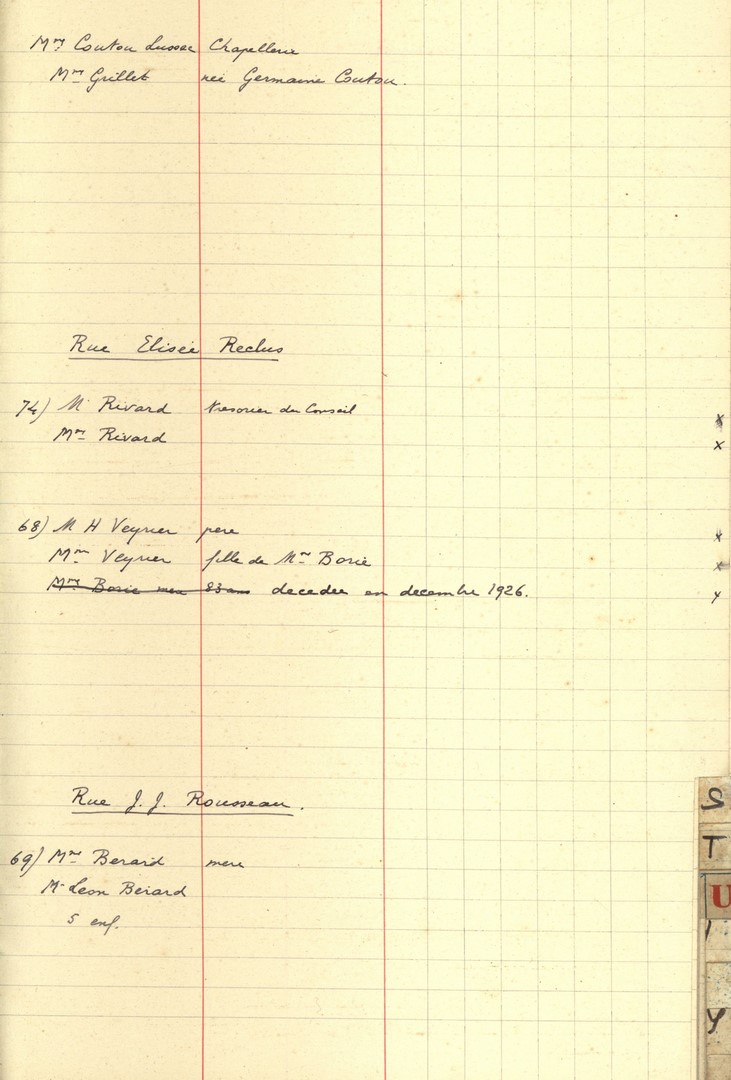 Mme Coutou Lussac Chapellerie
Mme Grillet née Germaine Coutou.
Rue Elisée Reclus
74) Mr Rivard tresorier du Conseil x
Mme Rivard x
68) M H Veyrier pere x
Mme Veyrier fille de Mme Borie x
Mme Borie mere 83 ans decedee en decembre 1926. x
Rue J. J. Rousseau.
69) Mme Berard mere
Mr Leon Berard
5 enf.
S
T
U
Y